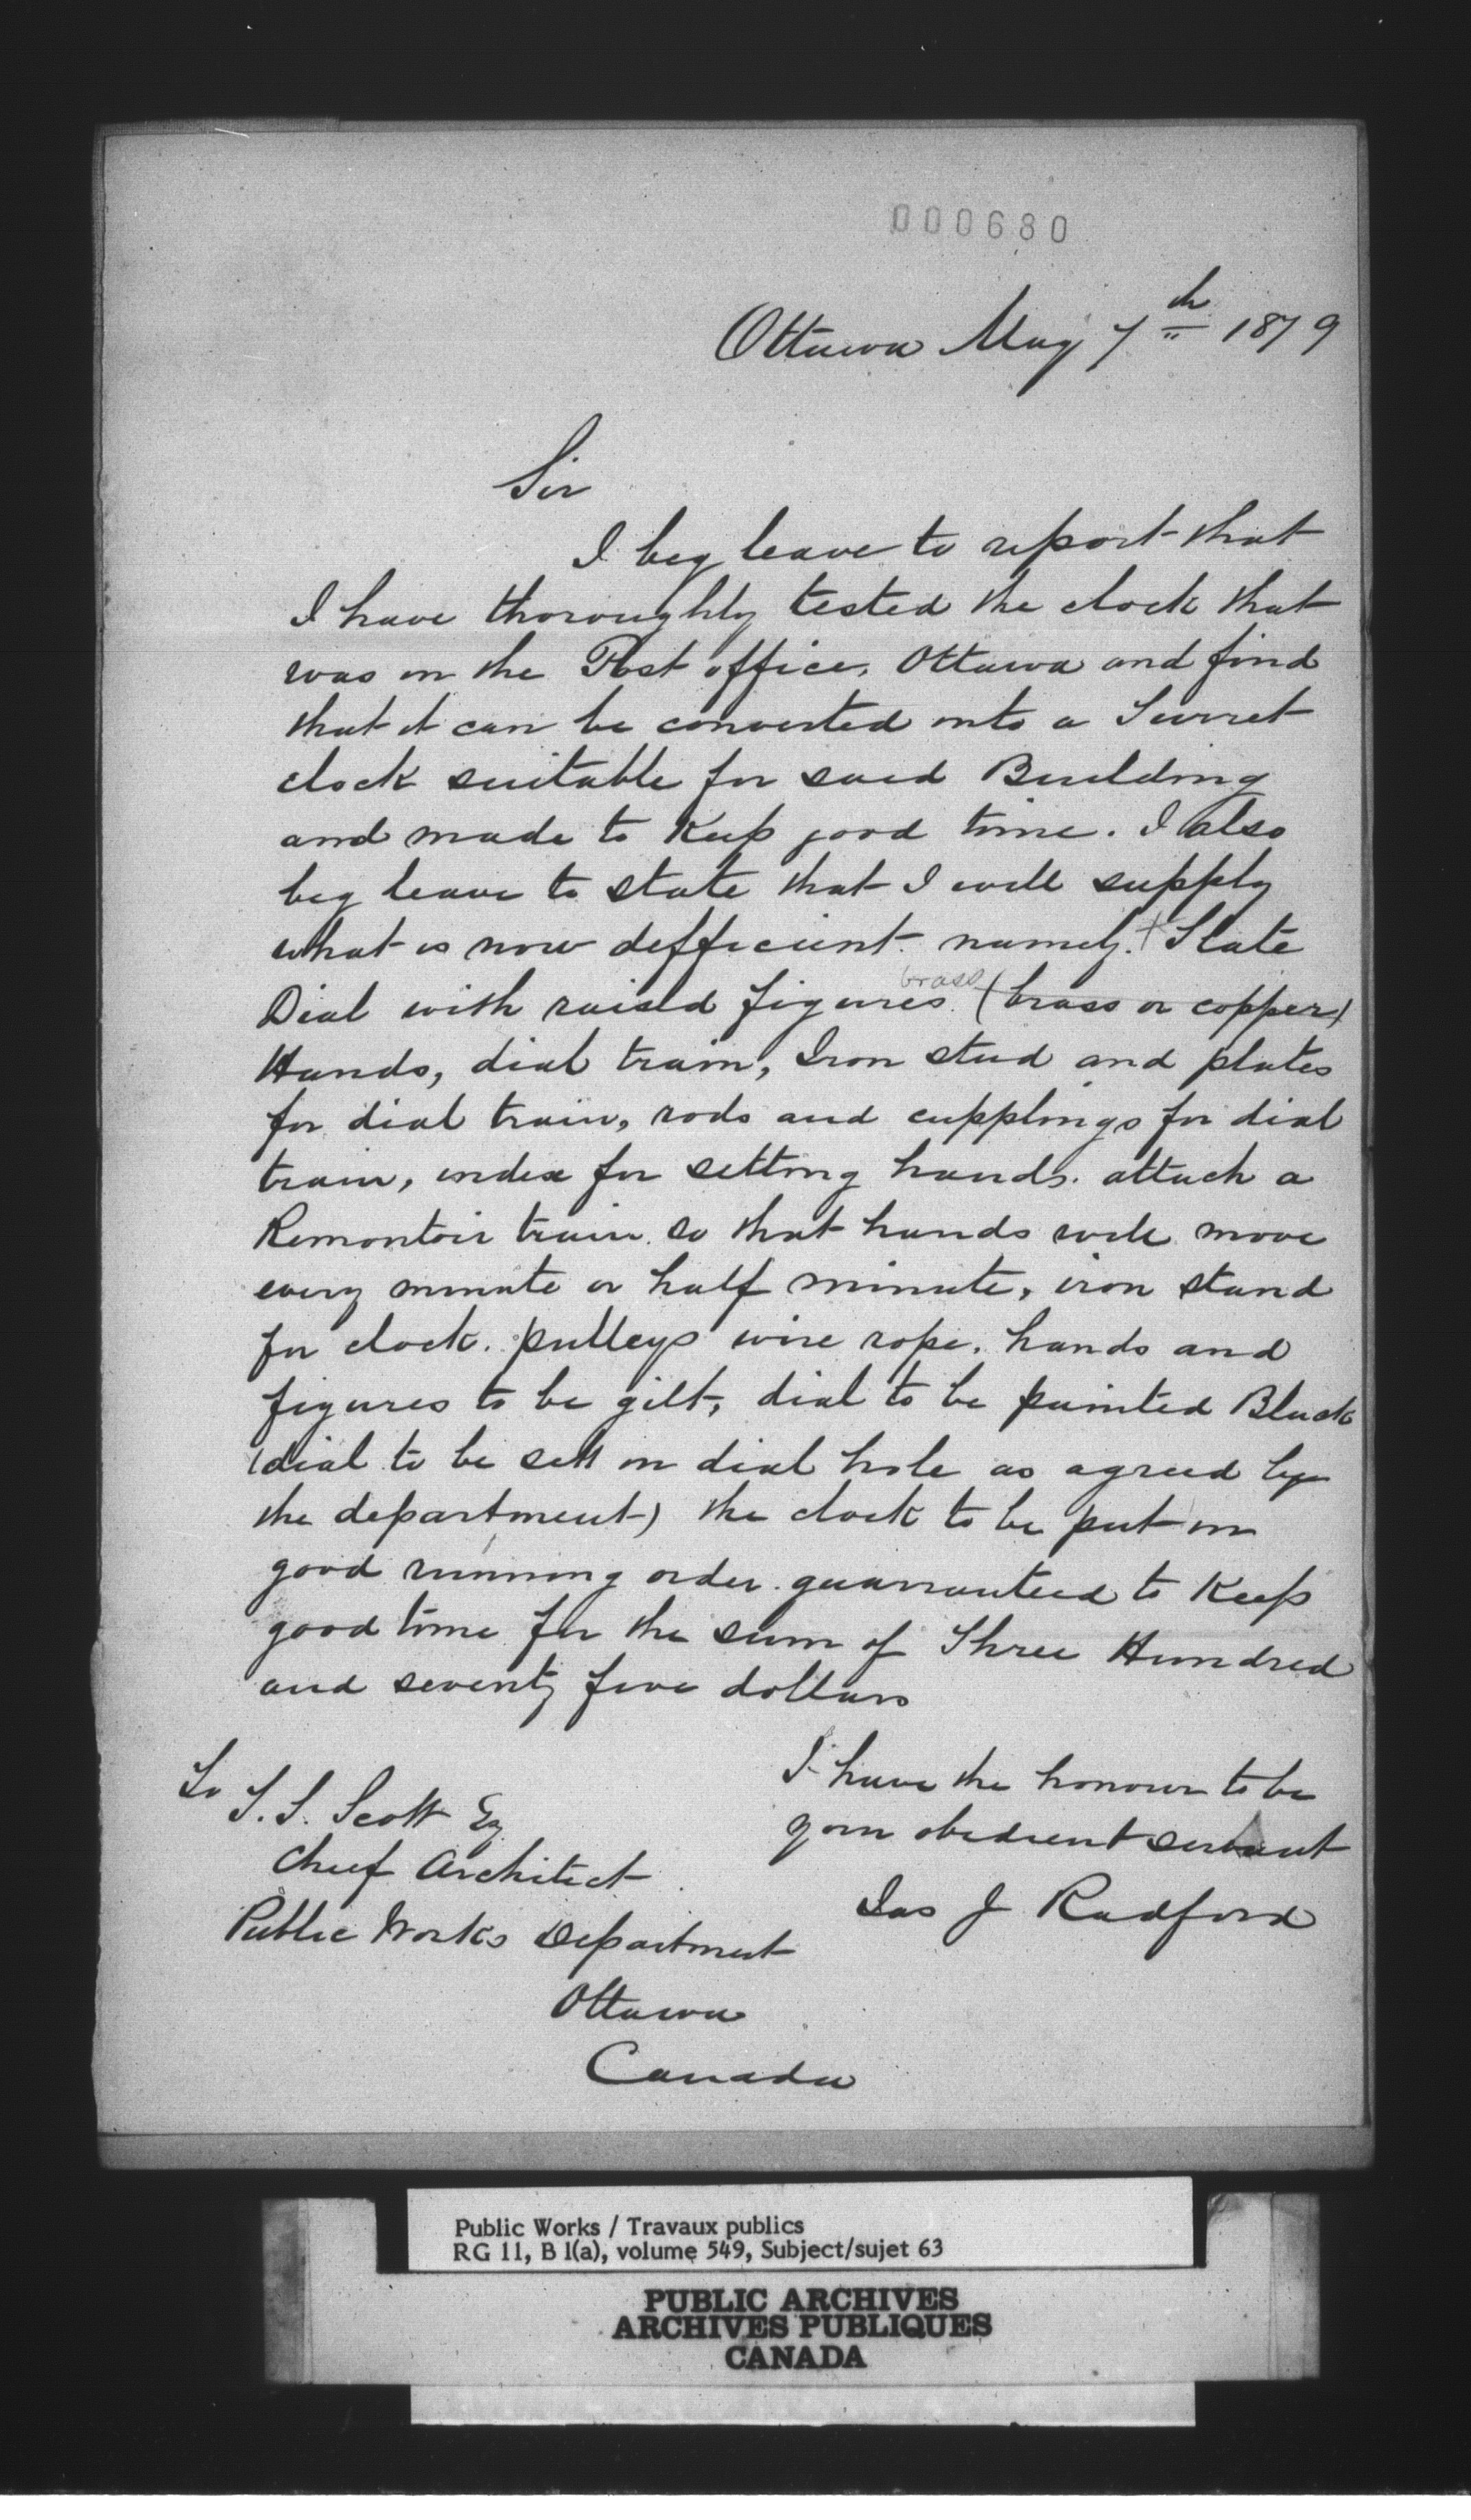 000680
Ottawa May 7th 1879
Sir
I beg leave to report that
I have thoroughly tested the clock that
was in the Post office, Ottawa and find
that it can be converted into a Turret
clock suitable for said Building
and made to Keep good time. I also
beg leave to state that I will supply
what is now defficient namely. + Slate
brass
Dial with raised figures (brass or copper)
Hands, dial train, Iron stud and plates
for dial train, rods and cupplings for dial
train, index for setting hands. attach a
Remontoir train so that hands will move
every minute or half minute, iron stand
for clock. pulleys wire rope, hands and
figures to be gilt, dial to be painted Black
(dial to be sett in dial hole as agreed by
the department) the clock to be put in
good running order guarranteed to Keep
good time for the sum of Three Hundred
and seventy five dollars
I have the honour to be
your obedient servant
Jas J Radford
To T. S. Scott Esq
Chief Architect
Public Works Department
Ottawa
Canada
Public Works / Travaux publics
RG 11, B 1(a), volume 549, Subject/sujet 63
PUBLIC ARCHIVES
ARCHIVES PUBLIQUES
CANADA